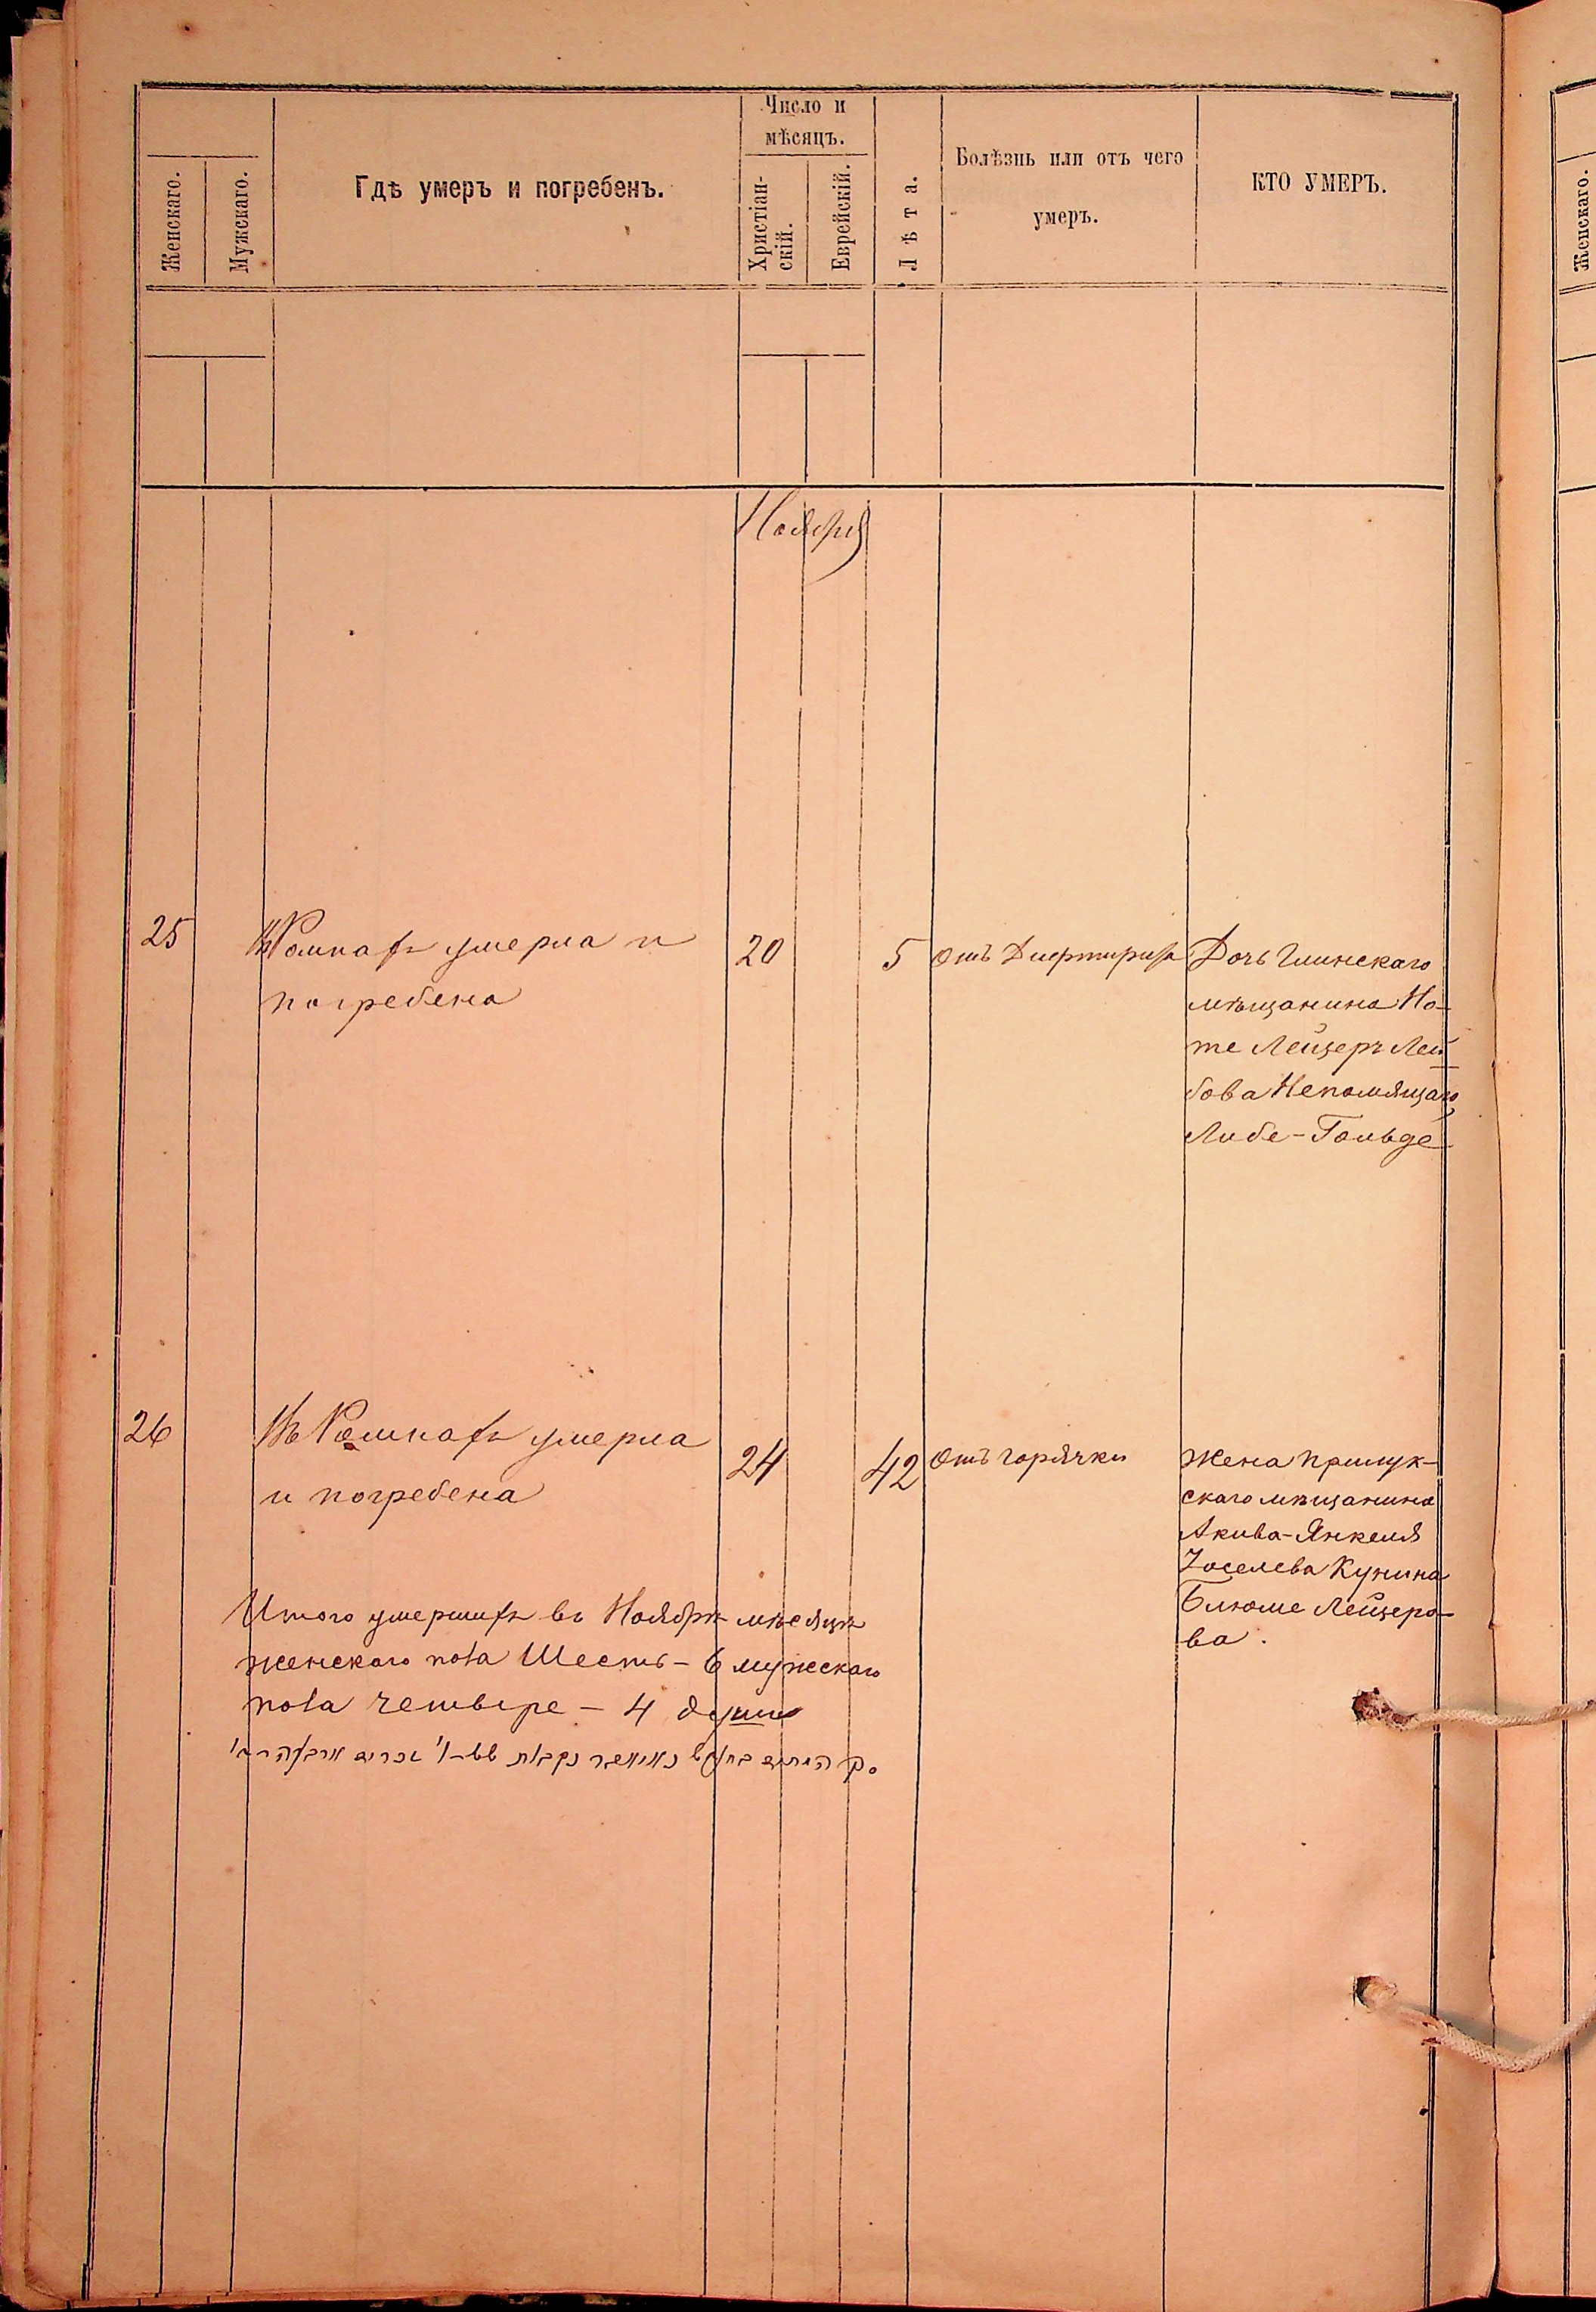 Число и
мѣсяцъ.
Женскаго.
Мужскаго.
Гдѣ умеръ и погребенъ.
Христіан-
скій.
Еврейскій.
Лѣта.
Болѣзнь или отъ чего
умеръ.
КТО УМЕРЪ.
Женскаго.
Ноября
25
Ромнахъ умерла и
погребена
20
5
отъ Дифтирита
Дочь Глинскаго
мѣщанина Но-
те Лейзеръ Лей-
бова Непомящаго
Либе-Гольде
26
Въ Ромнахъ умерла
и погребена
24
42
отъ горячки
Жена прилук-
скаго мѣщанина
Акива-Янкеля
Іоселева Кунина
Блюме Лейзеро-
ва.
Итого умершихъ въ Ноябрѣ мѣсяцѣ
женскаго пола Шесть - 6 мужскаго
пола четыре - 4 души